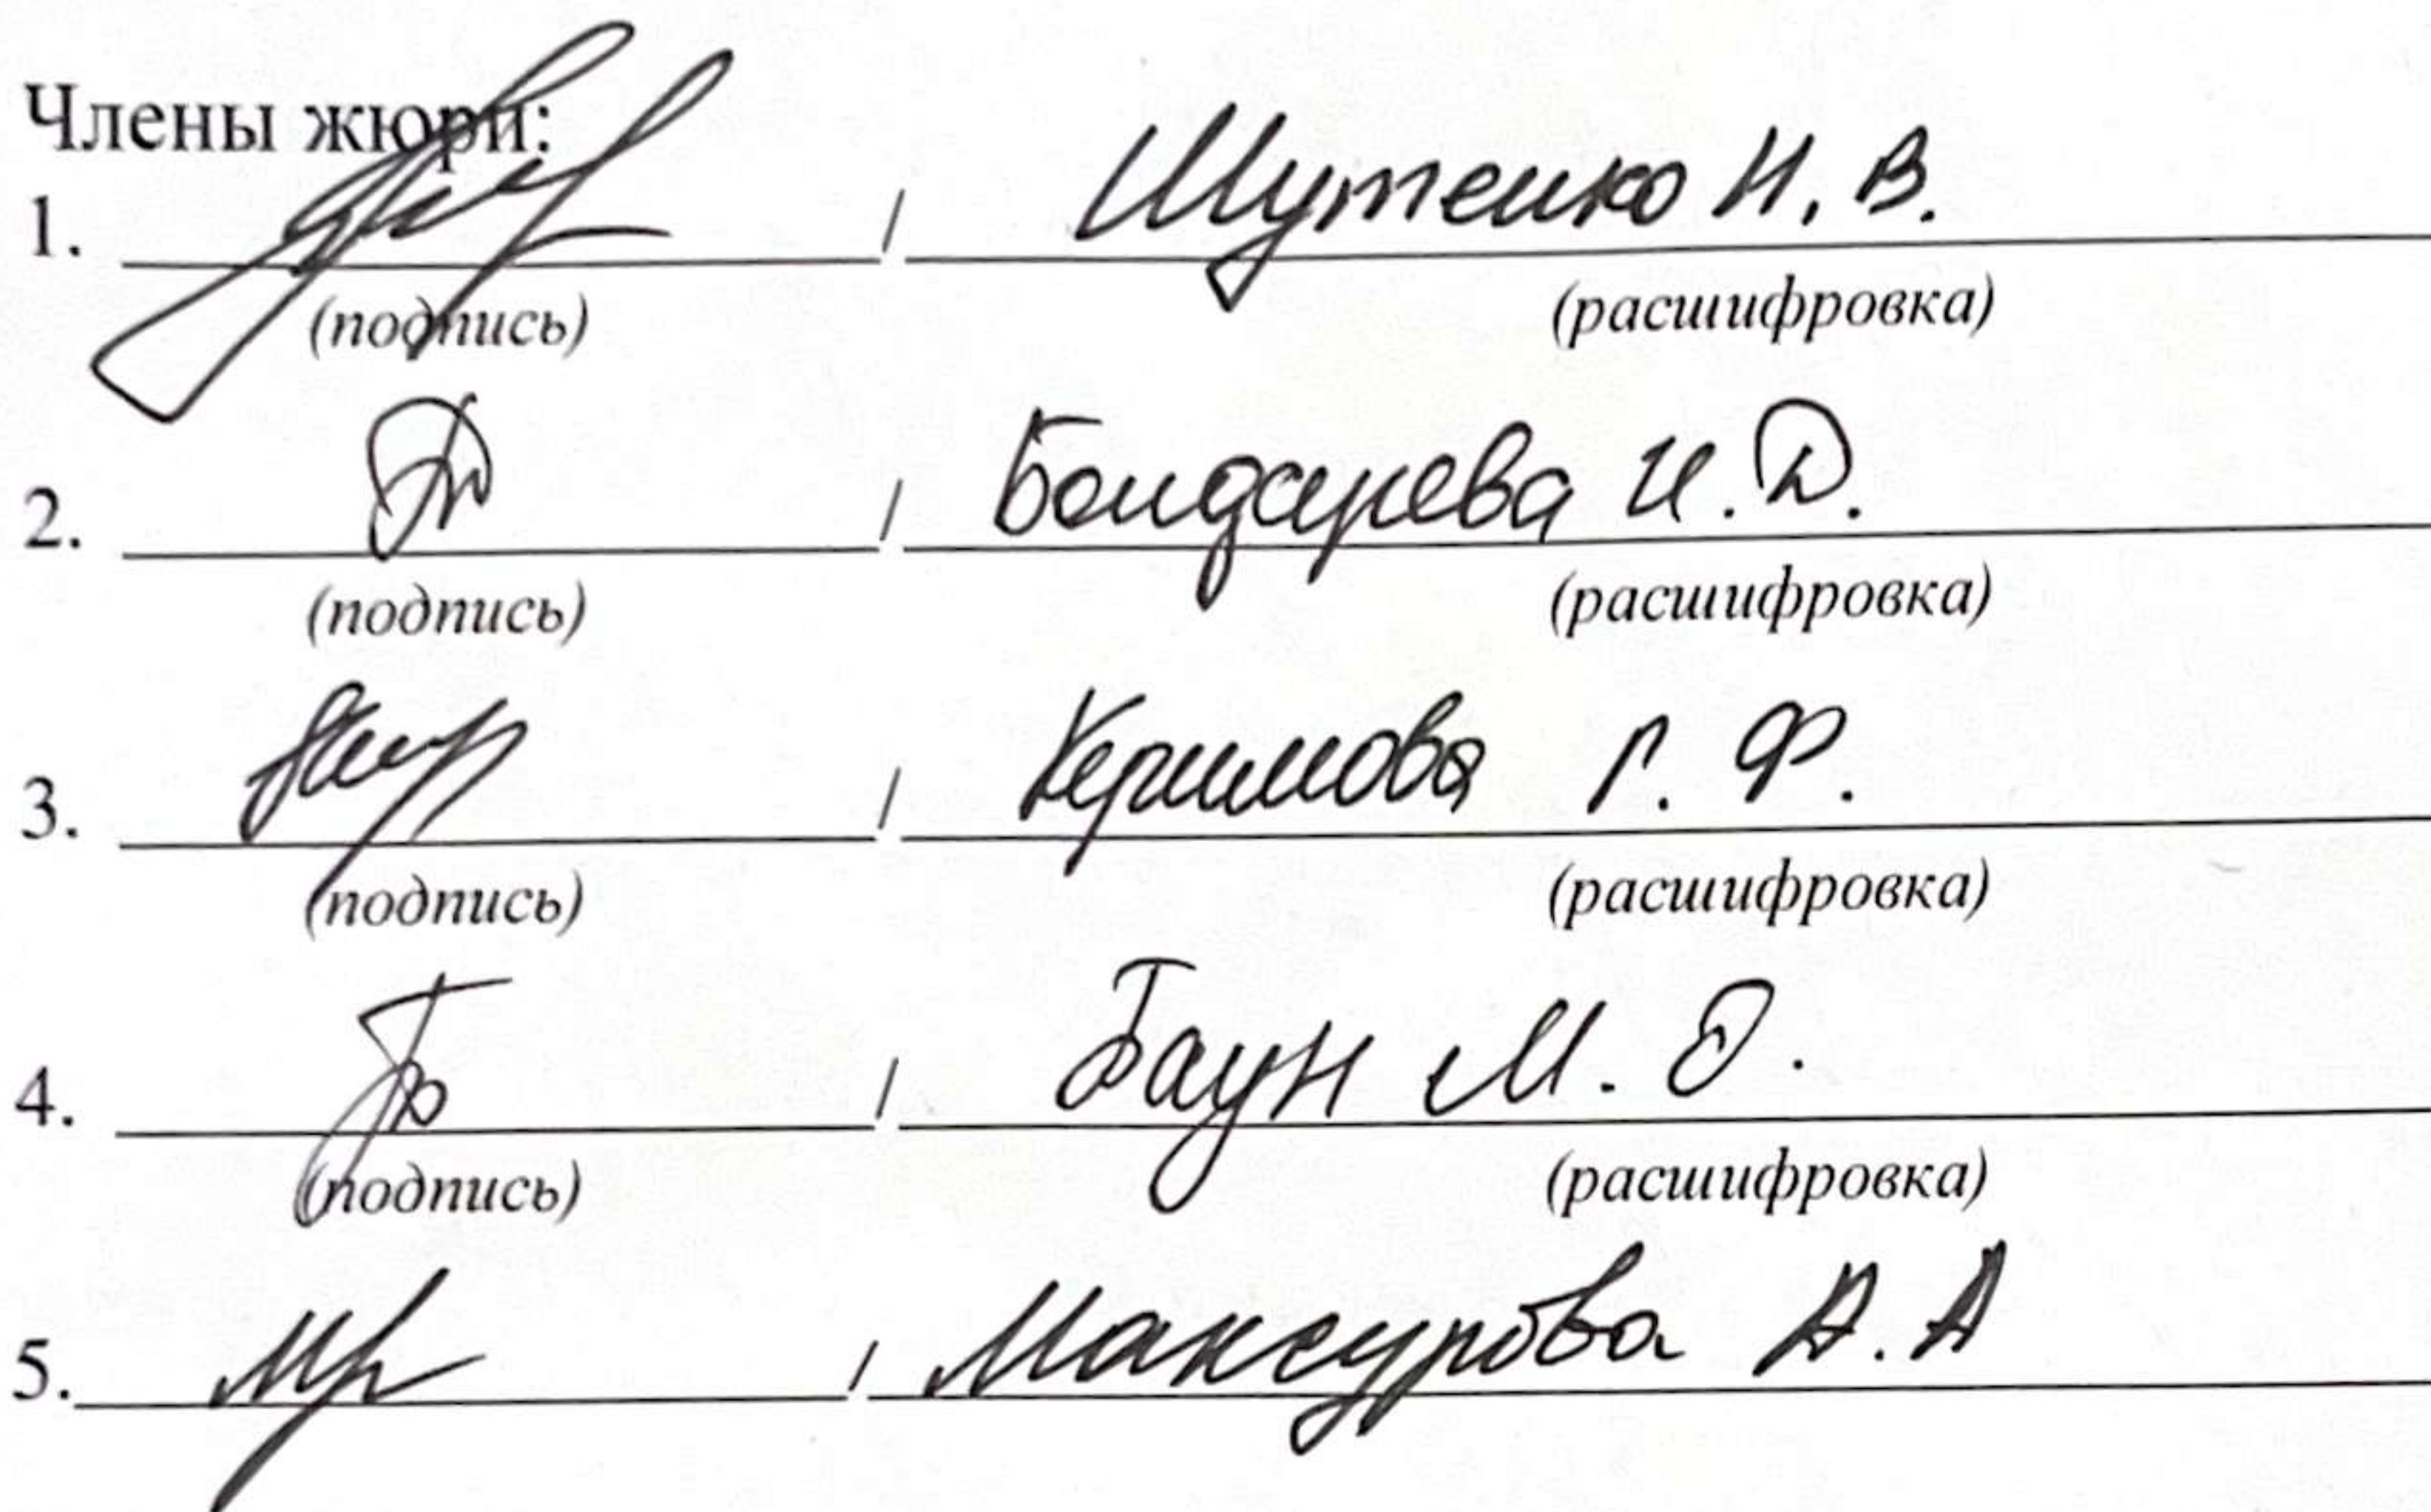 Члены жюри:
1. / Шутенко Н. В.
(подпись) (расшифровка)
2. / Бондарева И. Д.
(подпись) (расшифровка)
3. / Керимова Г. Ф.
(подпись) (расшифровка)
4. / Баун М. О.
(подпись) (расшифровка)
5. / Максурова А. А